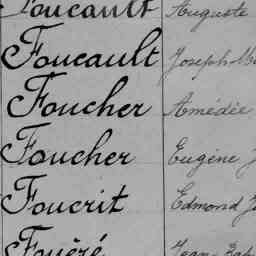 Foucault Auguste
Foucault Joseph
Foucher Amédée
Foucher Eugène
Foucrit Edmond
Fouéré Jean